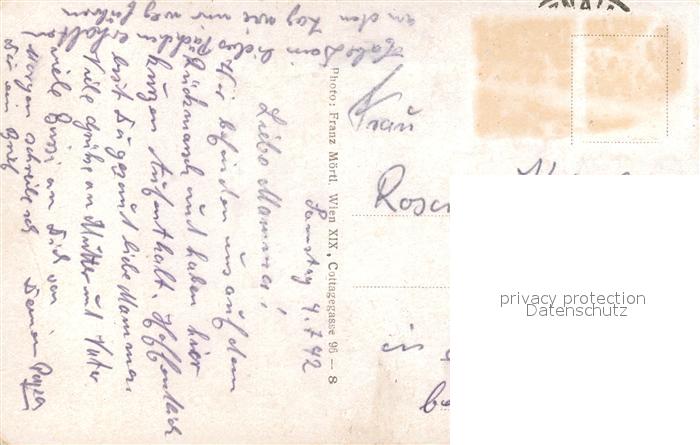 Samstag 4.7.42
Liebe Mamma!
Wir befinden uns auf dem
Rückmarsch und haben hier
kurzen Aufenthalt. Hoffentlich
bist Du gesund liebe Mamma.
Viele Grüße an Mutter und Vater
viele Bussi an Dich von
Deinem
Morgen schreibe ich
Dir ein Brief
Habe Dein liebes
erhalten
an den Tag wie wir weg
Photo: Franz Mörtl, Wien XIX, Cottagegasse 96 — 8
Frau
in
privacy protection
Datenschutz